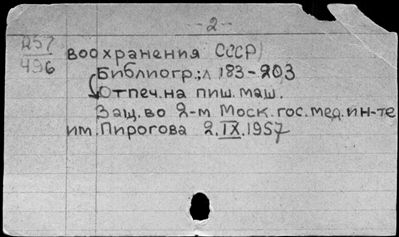 -2-
257
496
воохранения СССР)
Библиогр.: л 183-203
Отпеч. на пиш. маш.
Защ. во 2-м Моск. гос. мед. ин-те
им. Пирогова 2.IX.1957